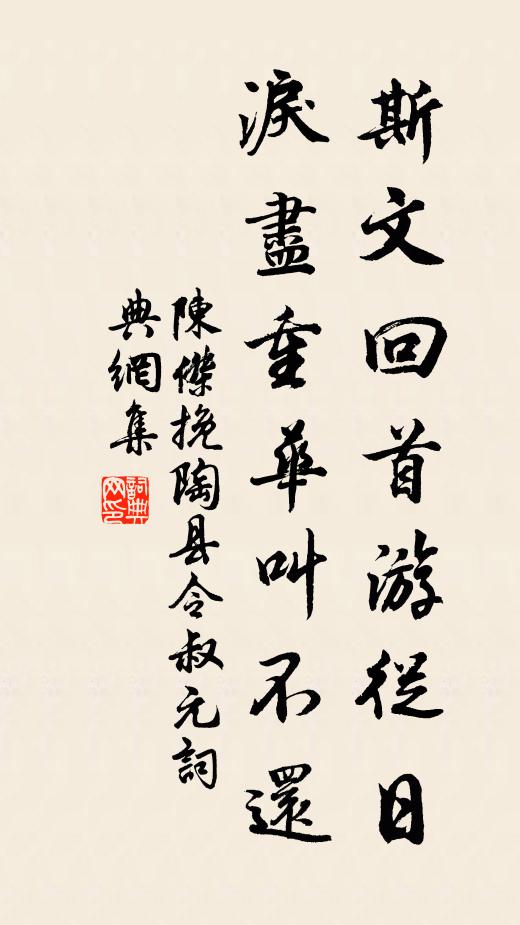 斯文回首游從日
淚盡重華叫不還
陳傑挽陶县令叔元詞
典網集
詞典網印